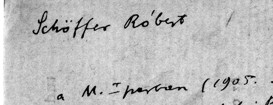 Schöffer Róbert
a M. Iparban (1905.